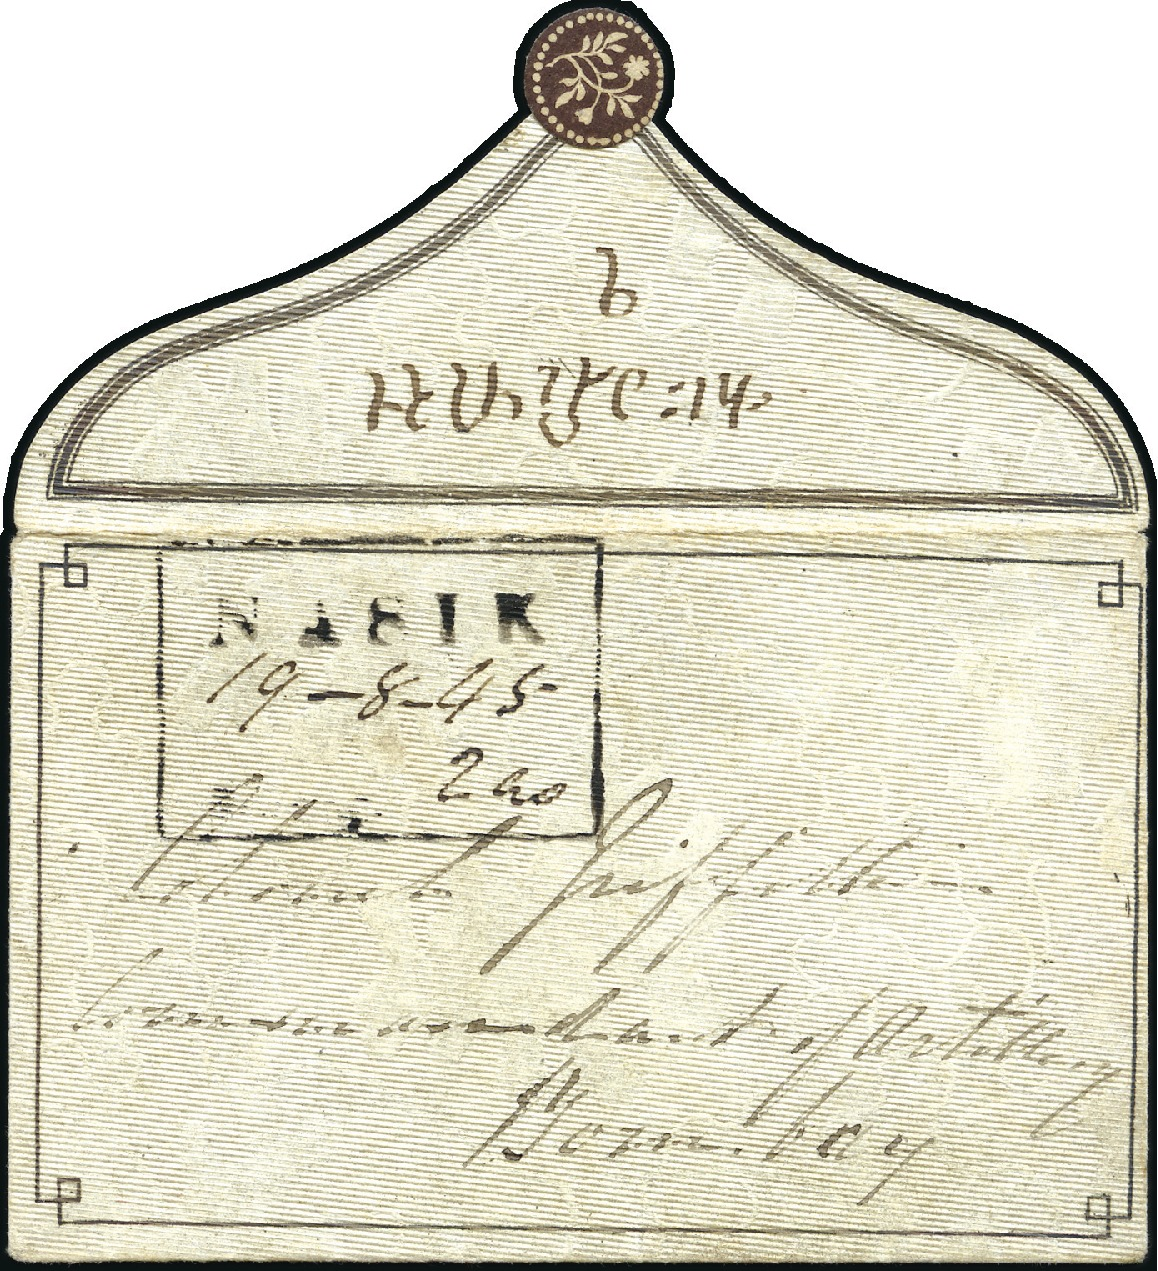 NASIK
19-8-45
2 as
Colonel Griffith
Commandant of Artillery
Bombay